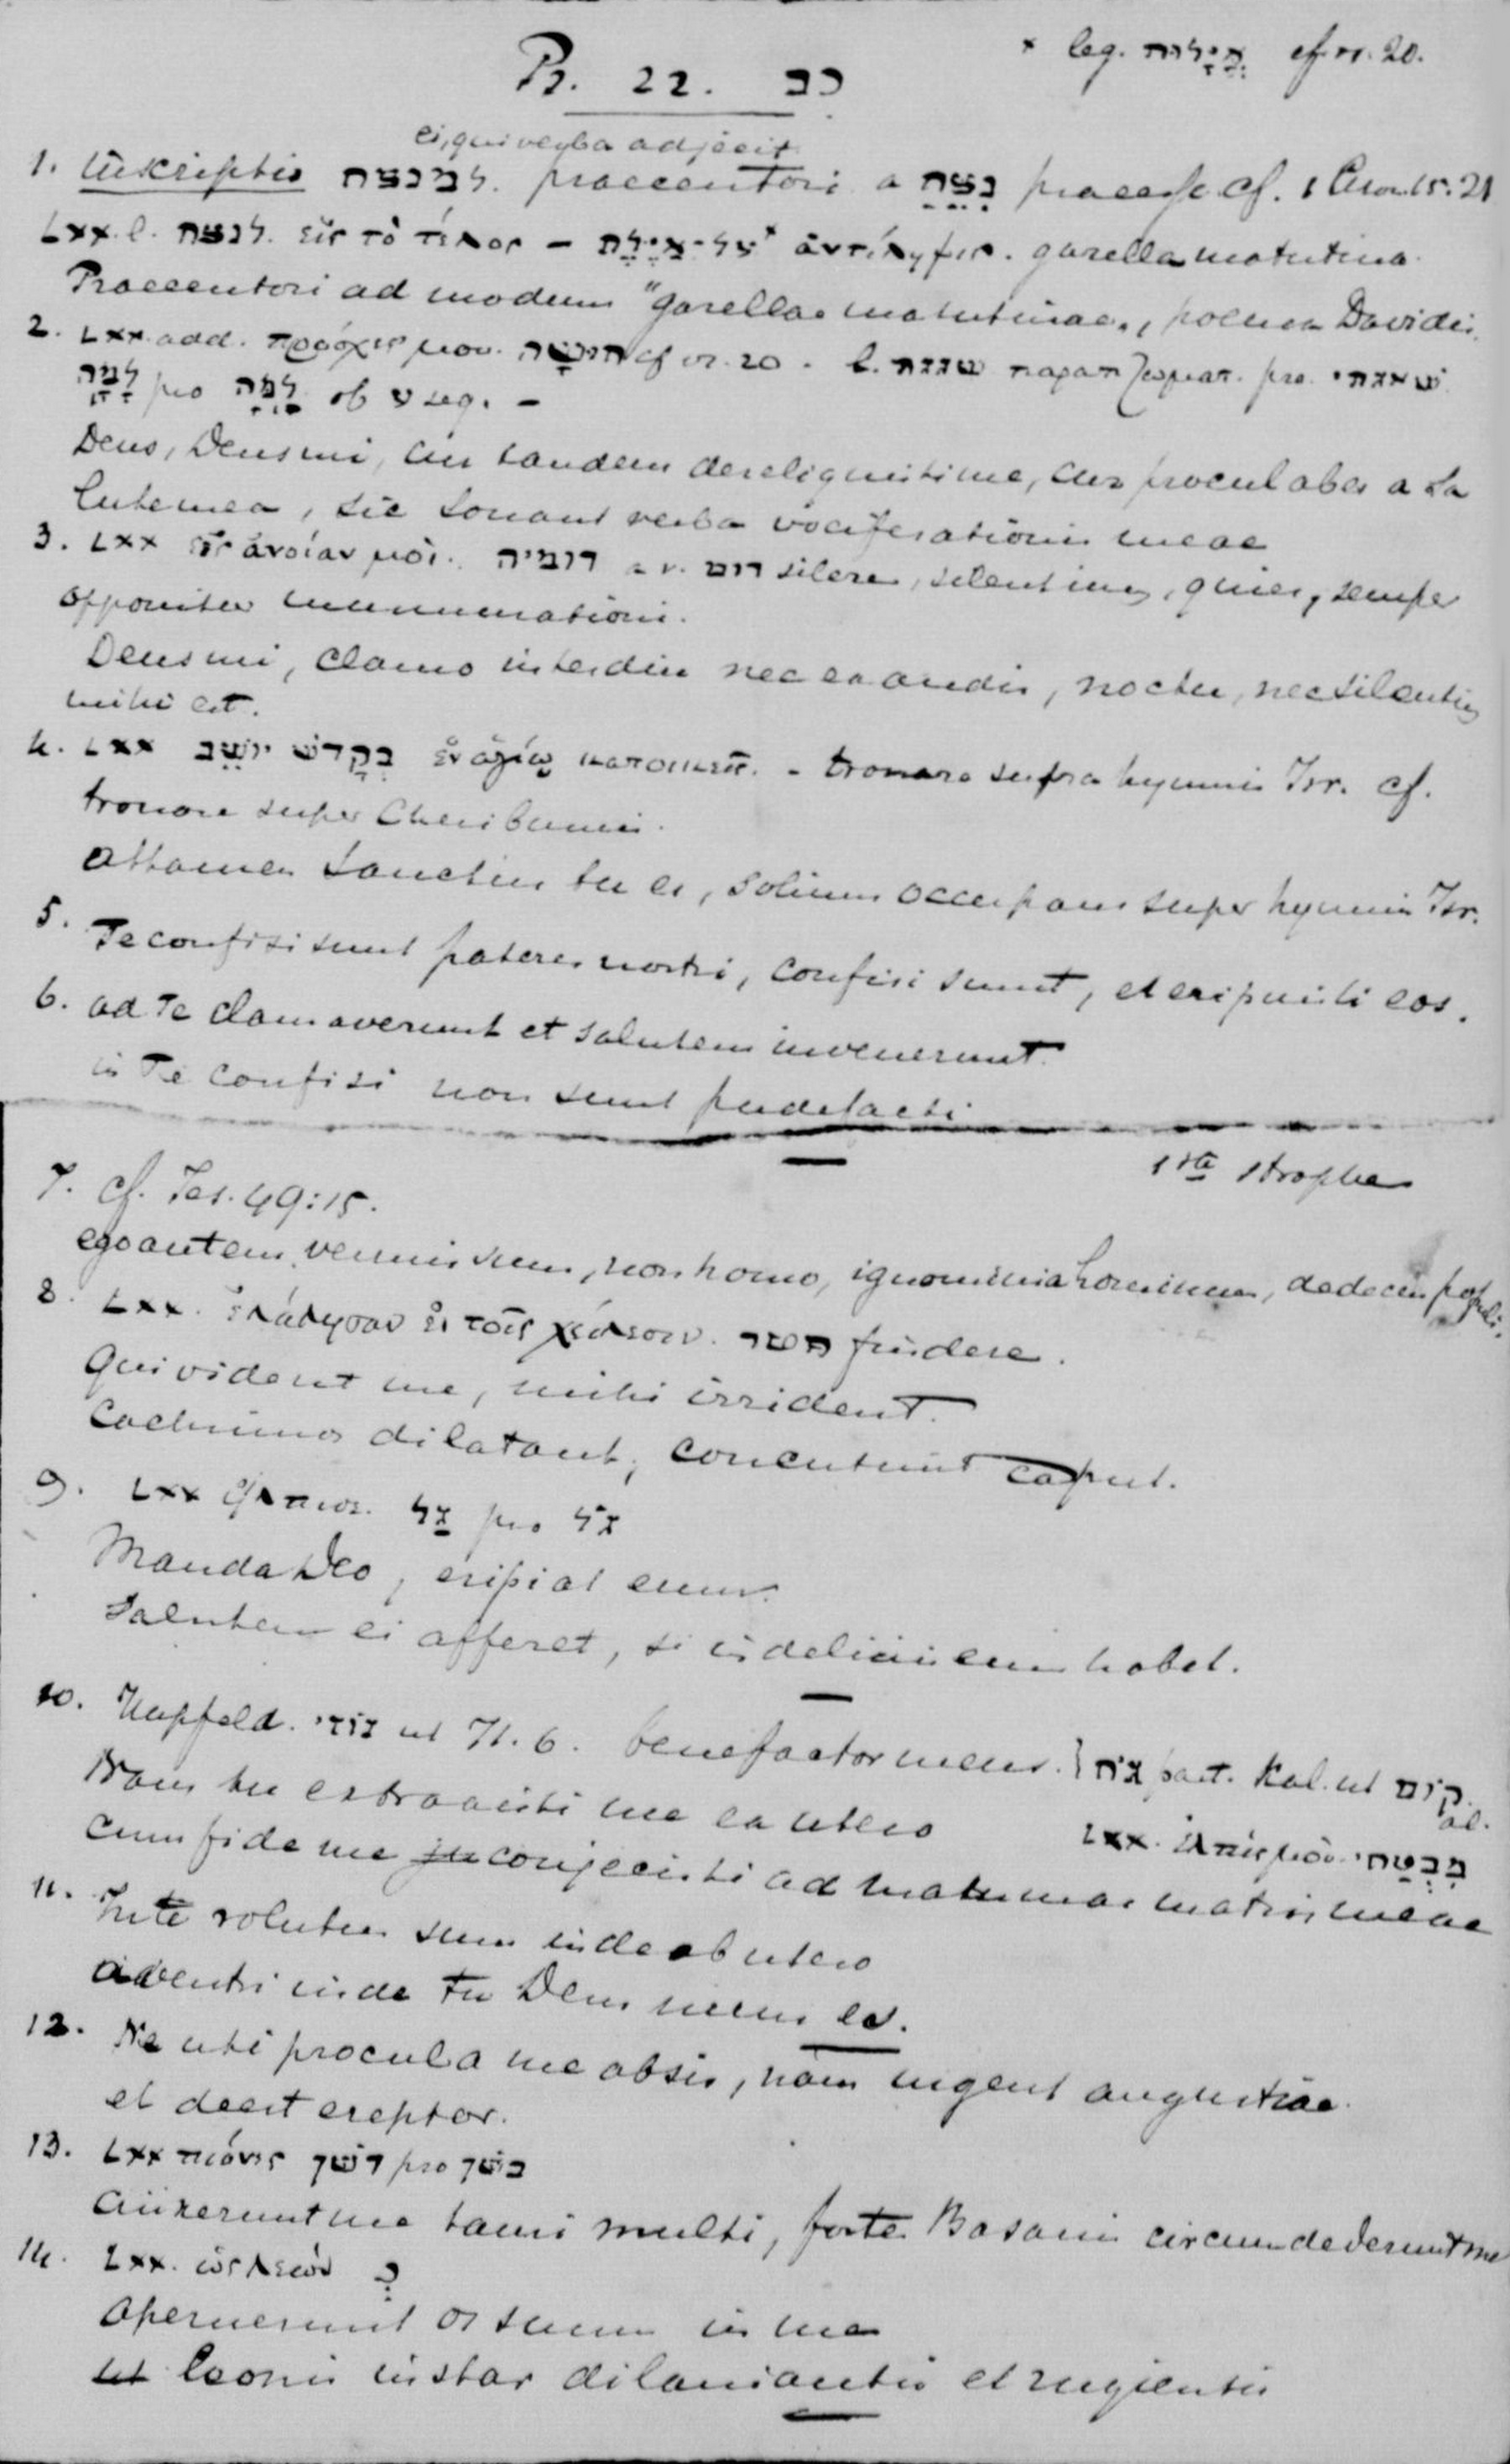 × leg. אֱיָלוּת cf. vs. 20.
Ps. 22. כב
ei, qui verba adjecit
1. Inskriptio למנצח. praecentori a נִצֵּחַ praeesse cf. 1 Chron. 15. 21
LXX. l. לנצח. εἰς τὸ τέλος – על־אַיֶּלֶת× ἀντίληψις. gazella matutina.
Praecentori ad modum "gazellae matutinae„, poema Davidis.
2. LXX. add. πρόσχες μοι. חוּשָׁה cf vs. 20. l. שגגת παραπτωματ. pro. שאגתי
לָמָה pro לָמָּה ob ש seq. –
Deus, Deus mi, cur tandem dereliquisti me, cur procul abes a sa
lute mea, sic sonant verba vociferationis meae
3. LXX εἰς ἄνοιαν μοὶ. דומיה a v. דום silere, silentium, quies, semper
opponitur murmurationi.
Deus mi, clamo interdiu nec exaudis, noctu, nec silentium
mihi est.
4. LXX בְּקֹדֶשׁ יוֹשֵׁב ἐν ἁγίῳ κατοικεῖς. – tronare supra hymnis Isr. cf.
tronare super Cheribumis.
attamen Sanctus tu es, solium occupans super hymnis Isr.
5. Te confisi sunt patres nostri, confisi sunt, et eripuisti eos.
6. ad Te clamaverunt et salutem invenerunt.
in Te confisi non sunt pudefacti
1sta strophe
7. cf. Jes. 49:15.
ego autem vermis sum, non homo, ignominia hominum, dedecus populi.
8. LXX. ἐλάλησαν ἐν τοῖς χείλεσιν. פטר findere.
Qui vident me, mihi irrident.
Cachinnos dilatant, concutiunt caput.
9. LXX ἤλπισε. גַּל pro גֹּל
Manda Deo, eripiat eum.
Salutem ei afferet, si in deliciis eum habet.
10. Hupfeld. גוזי ut 71. 6. benefactor meus. } גֹּחַ part. Kal. ut קום.
al.
Nam tu extraxisti me ex utero
LXX. ἐλπίς μου. מִבְטַחִי
cum fide me conjecisti ad mammas matris meae
11. In te volutus sum inde ab utero
a ventri inde tu Deus meus es.
12. Ne uti procul a me absis, nam urgent angustiae.
et deest ereptor.
13. LXX πίονες דשן pro בשן
Cinxerunt me tauri multi, forte Basanis circumdederunt me
14. LXX. ὡς λέων כְּ
Aperuerunt os suum in me
ut leonis instar dilaniantis et rugientis